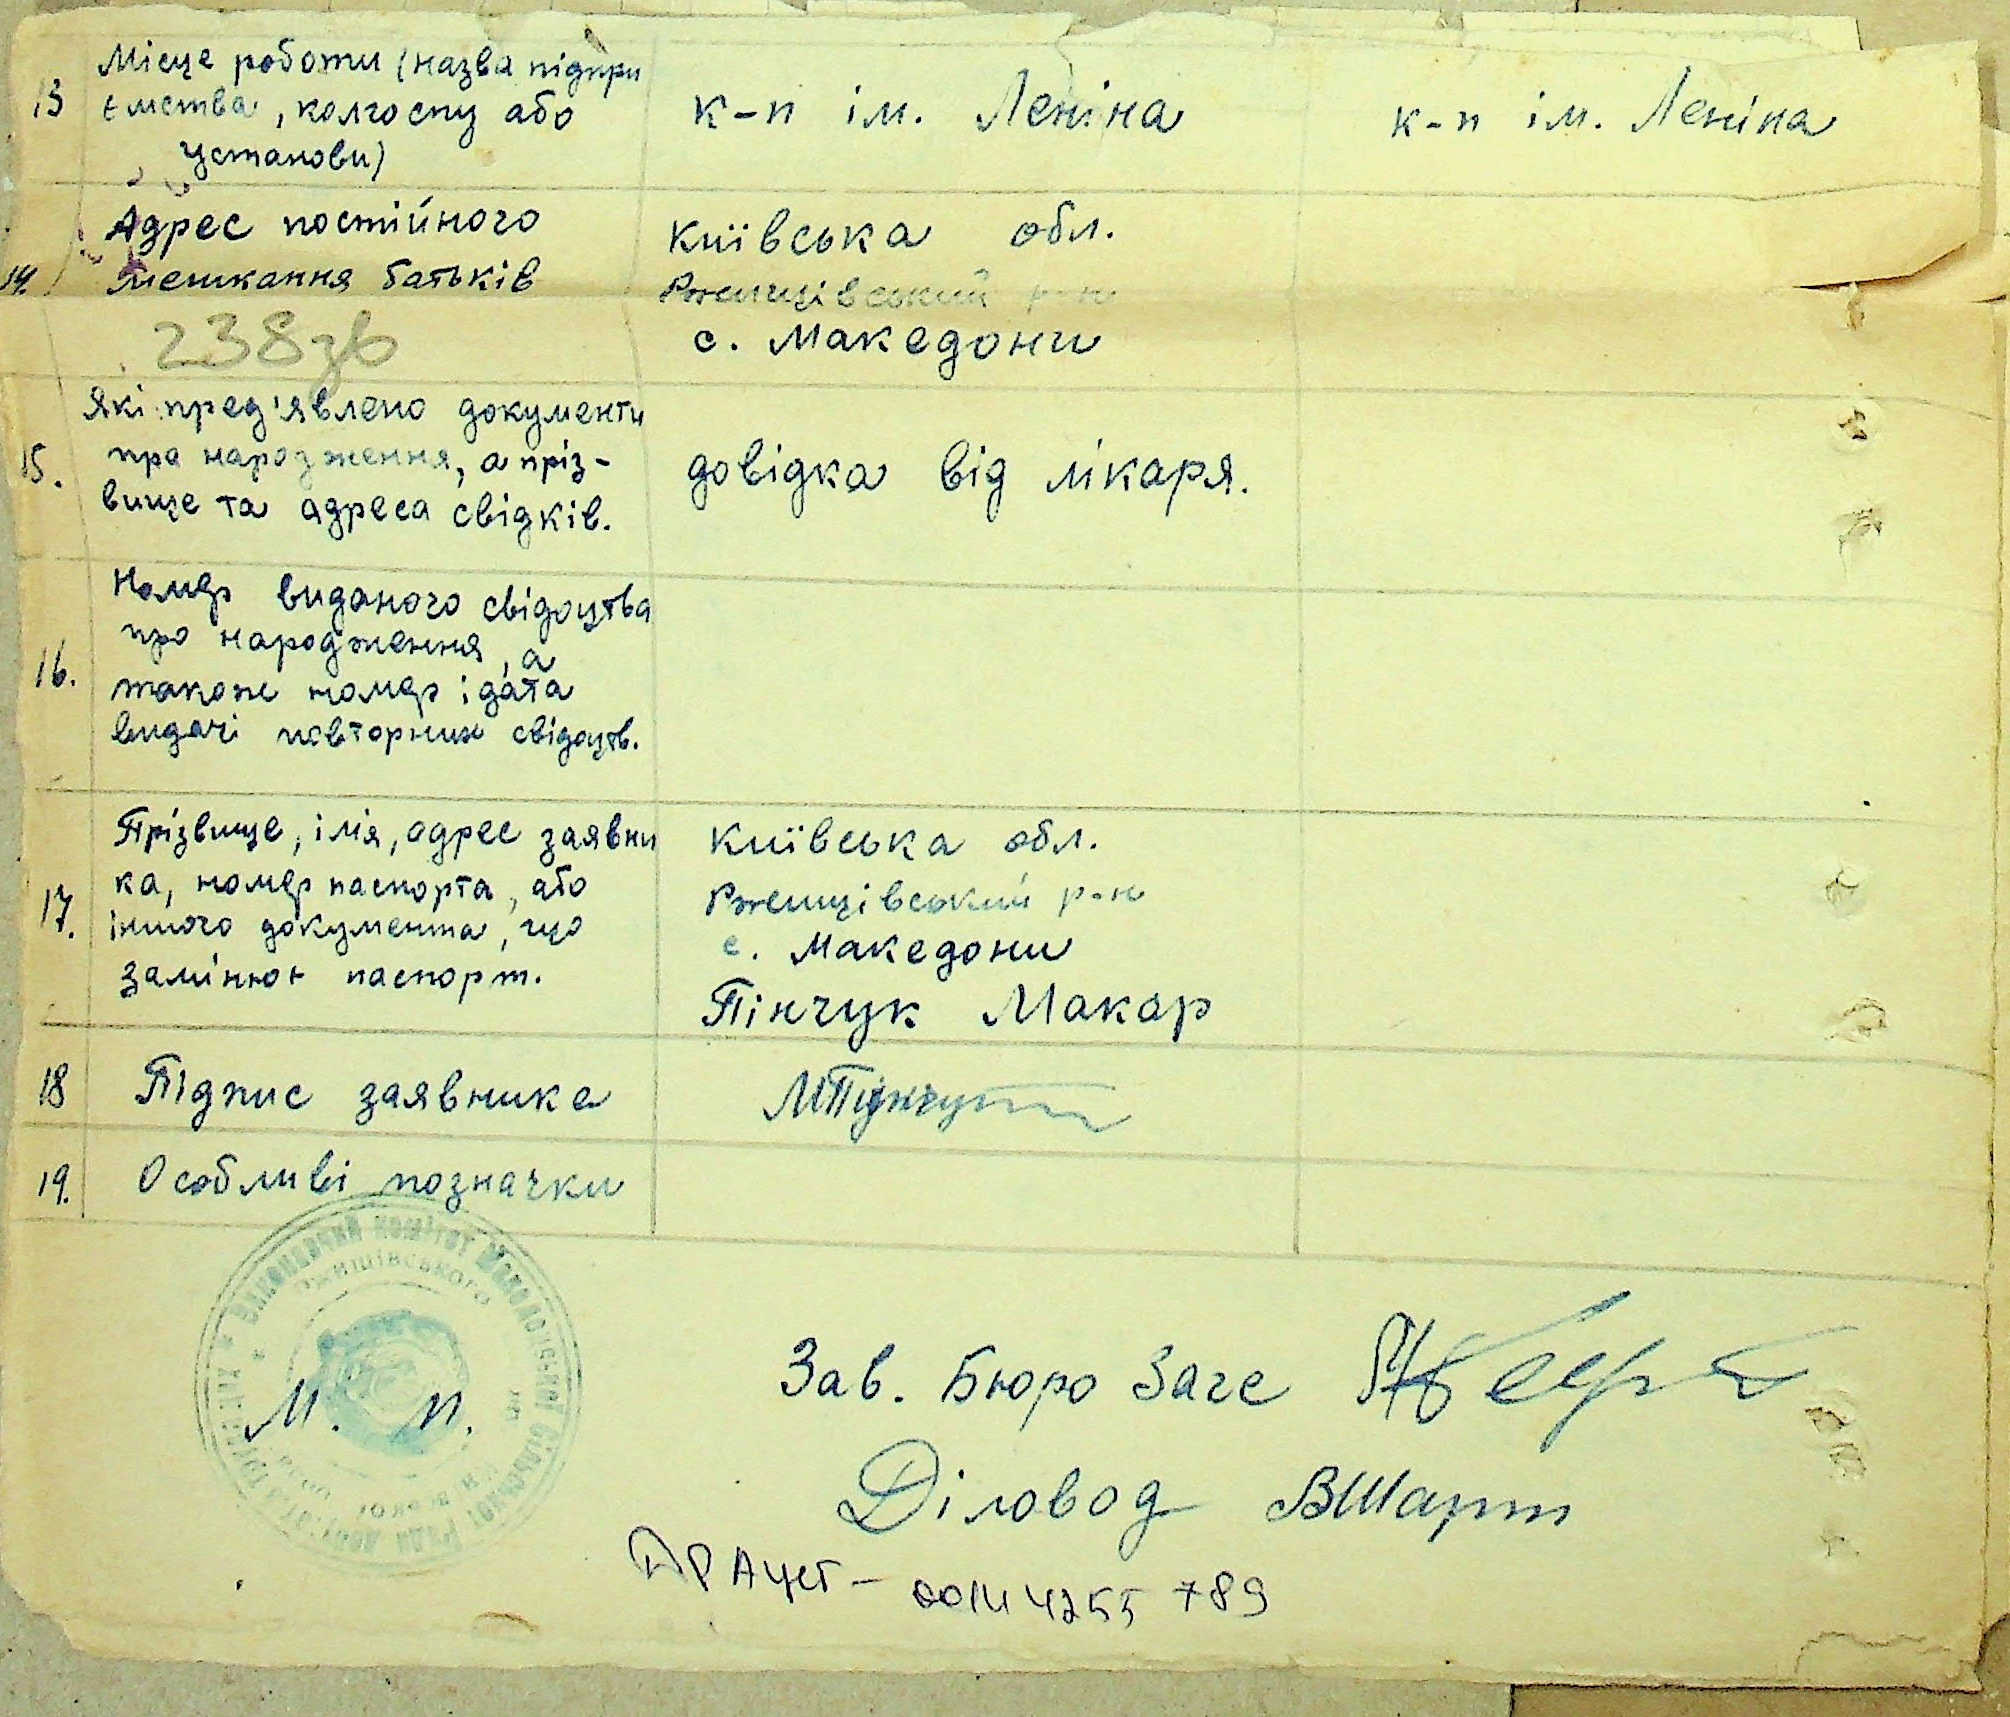 13 Місце роботи (назва підпри
ємства, колгоспу або
установи)
к-п ім. Леніна
к-п ім. Леніна
14. Адрес постійного
мешкання батьків
Київська обл.
Ржищівський р-н
с. Македони
238зв
15. Які пред'явлено документи
про народження, а пріз-
вище та адреса свідків.
довідка від лікаря.
16. Номер виданого свідоцтва
про народження, а
також номер і дата
видачі повторних свідоцтв.
17. Прізвище, імя, адрес заявни
ка, номер паспорта, або
іншого документа, що
замінює паспорт.
Київська обл.
Ржищівський р-н
с. Македони
Пінчук Макар
18 Підпис заявника
МПінчук
19. Особливі позначки
Виконавчий комітет Македонської сільської Ради депутатів трудящих
Ржищівського
М. П.
Зав. Бюро Загс
Діловод
ДРАЦСГ - 00144255789